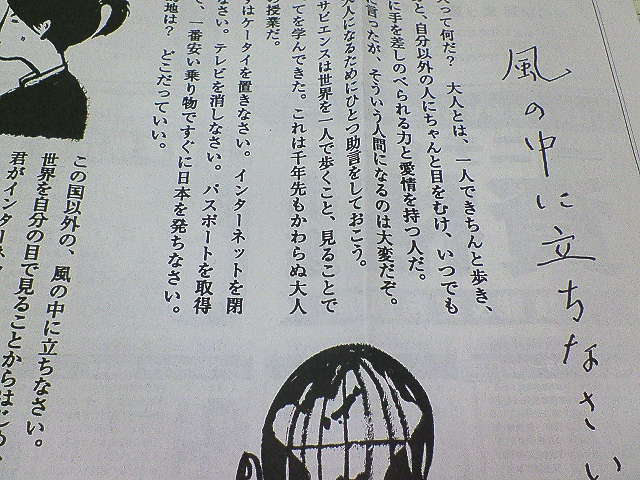 風の中に立ちなさい
って何だ？　大人とは、一人できちんと歩き、
と、自分以外の人にちゃんと目をむけ、いつでも
に手を差しのべられる力と愛情を持つ人だ。
に言ったが、そういう人間になるのは大変だぞ。
人になるためにひとつ助言をしておこう。
サピエンスは世界を一人で歩くこと、見ることで
てを学んできた。これは千年先もかわらぬ大人
授業だ。
はケータイを置きなさい。インターネットを閉
なさい。テレビを消しなさい。パスポートを取得
、一番安い乗り物ですぐに日本を発ちなさい。
地は？　どこだっていい。
この国以外の、風の中に立ちなさい。
世界を自分の目で見ることからはじめ
君がインターネッ